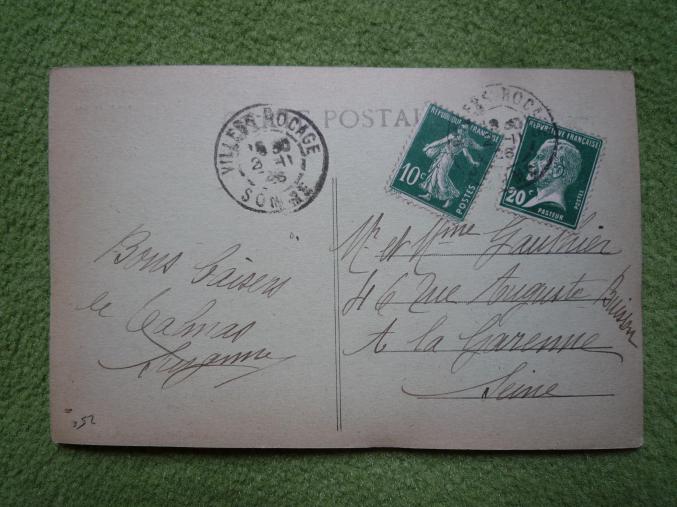 CARTE POSTALE
VILLERS-BOCAGE
SOMME
REPUBLIQUE FRANÇAISE
10c
POSTES
REPUBLIQUE FRANÇAISE
20c
POSTES
PASTEUR
Bons baisers
de Talmas
Suzanne
Mr et Mme Gauthier
46 Rue Auguste Buisson
A la Garenne
Seine